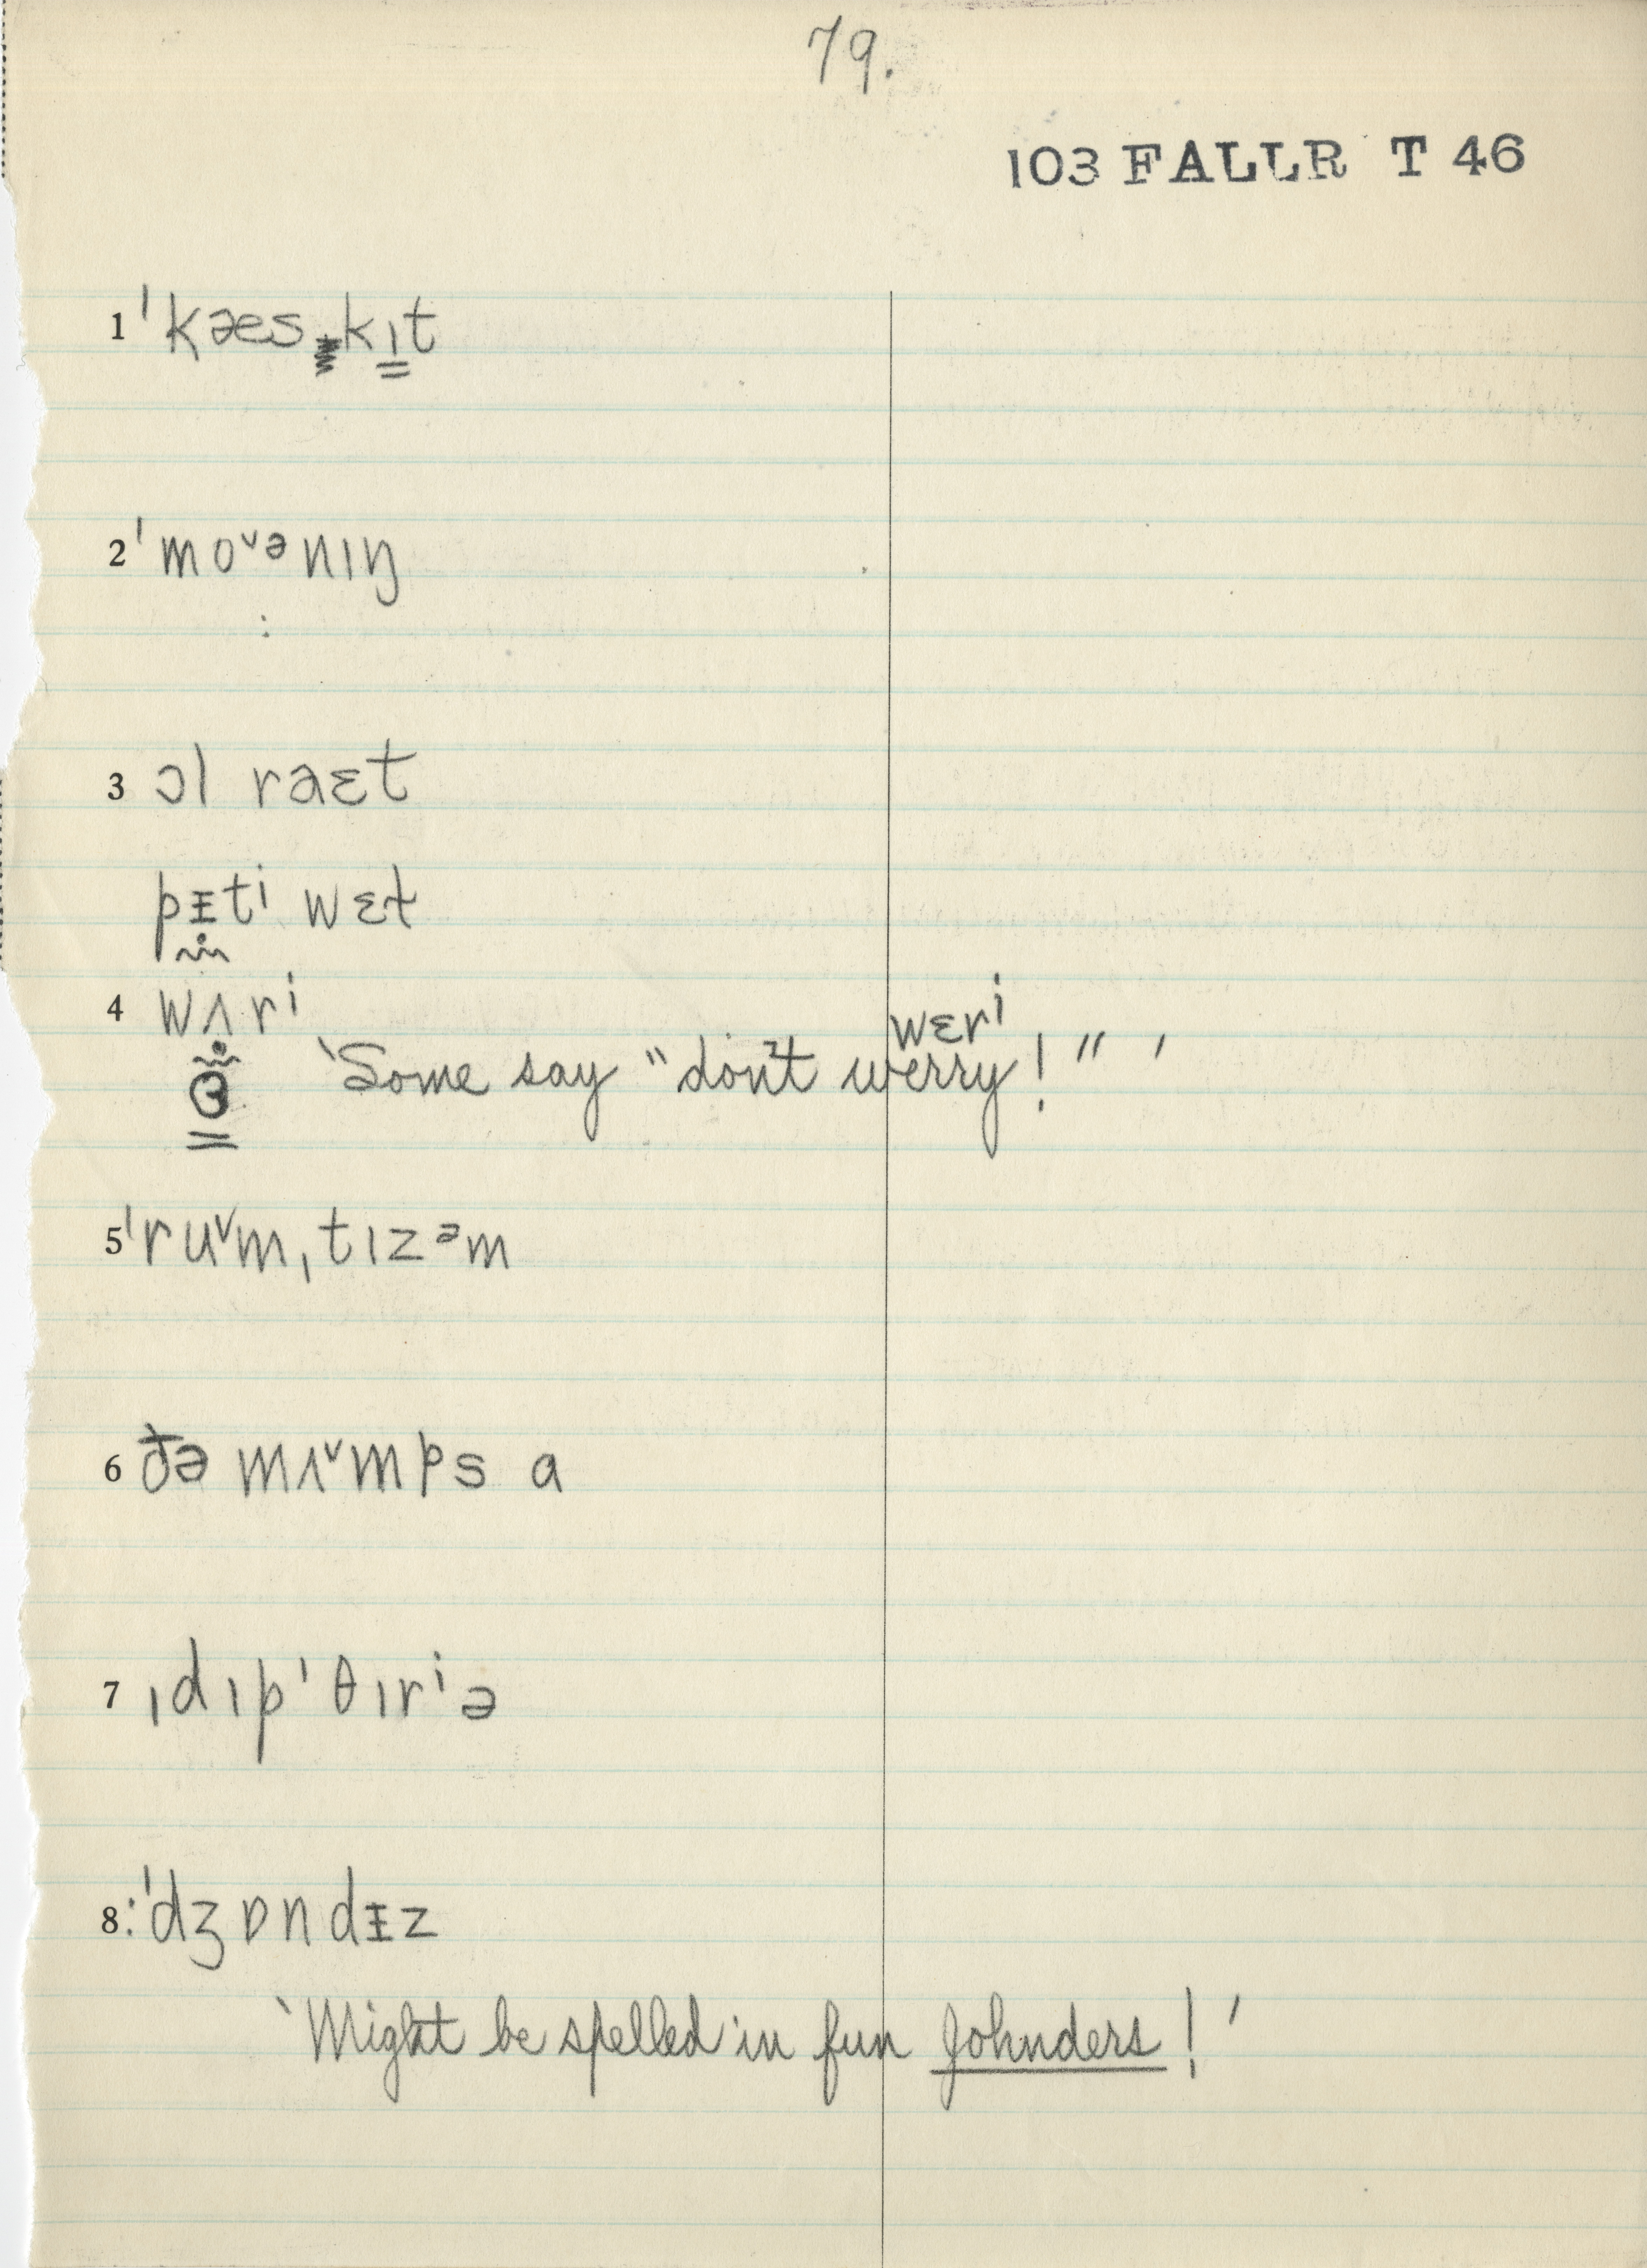 79.
103 FALLR T 46
1 ˈkæskɪt
2 ˈmoˇᵊnɪŋ
3 ɔl raɛt
pᵻtⁱ wɛt
4 wʌrⁱ
wɛrⁱ
ɵ ‵Some say "don't werry!" ′
5 ˈruˇmˌtɪzᵊm
6 ðə mʌˇmps a
7 ˌdɪpˈθɪrⁱə
8: ˈdʒɒndᵻz
‵Might be spelled in fun Johnders! ′